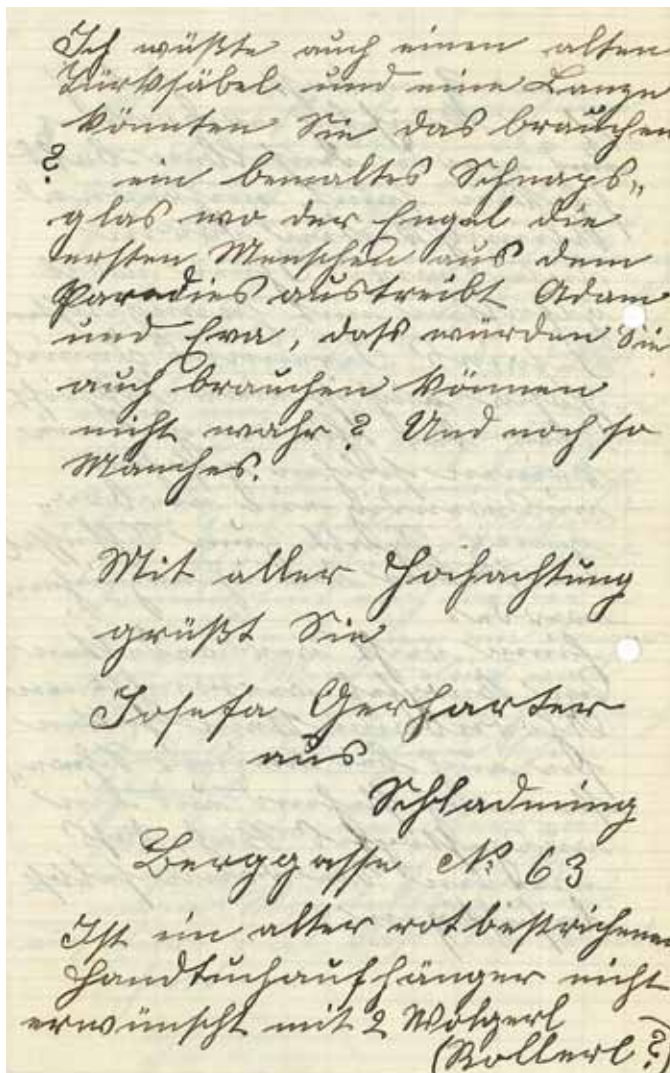 Ich wüßte auch einen alten
Türksäbel und eine Lanze
könnten Sie das brauchen
? ein bemaltes Schnaps„
glas wo der Engel die
ersten Menschen aus dem
Paradies austreibt Adam
und Eva, dass würden Sie
auch brauchen können
nicht wahr? Und noch so
Manches.
Mit aller Hochachtung
grüßt Sie
Josefa Gerharter
aus
Schladming
Berggasse № 63
Ist ein alter rot bestrichener
Handtuchaufhänger nicht
erwünscht mit 2 Wolgerl
(Rollerl?)